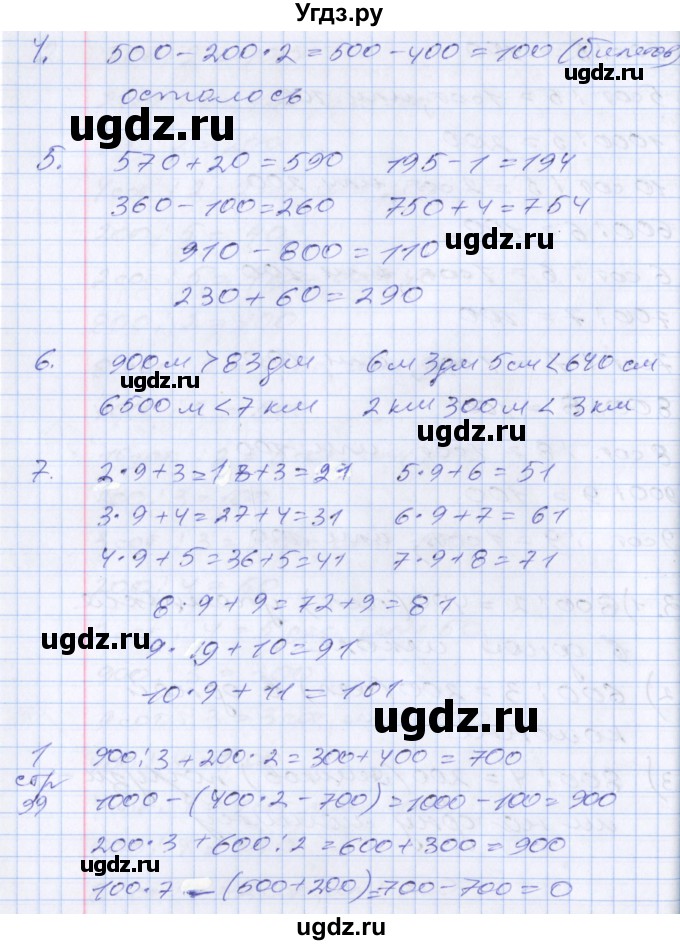 Угдз.ру
4. 500 - 200 · 2 = 500 - 400 = 100 (билетов)
ugdz.ru
осталось
ugdz.ru
5. 570 + 20 = 590 195 - 1 = 194
360 - 100 = 260 750 + 4 = 754
910 - 800 = 110
ugdz.ru
230 + 60 = 290
6. 900м > 83 дм 6м 3дм 5см < 640 см
ugdz.ru
6500 м < 7 км 2 км 300 м < 3 км
ugdz.ru
7. 2 · 9 + 3 = 18 + 3 = 21 5 · 9 + 6 = 51
3 · 9 + 4 = 27 + 4 = 31 6 · 9 + 7 = 61
4 · 9 + 5 = 36 + 5 = 41 7 · 9 + 8 = 71
8 · 9 + 9 = 72 + 9 = 81
ugdz.ru
9 · 9 + 10 = 91
10 · 9 + 11 = 101
ugdz.ru
1 900 : 3 + 200 · 2 = 300 + 400 = 700
стр
99 1000 - (400 · 2 - 700) = 1000 - 100 = 900
ugdz.ru
200 · 3 + 600 : 2 = 600 + 300 = 900
ugdz.ru
100 · 7 - (500 + 200) = 700 - 700 = 0
ugdz.ru